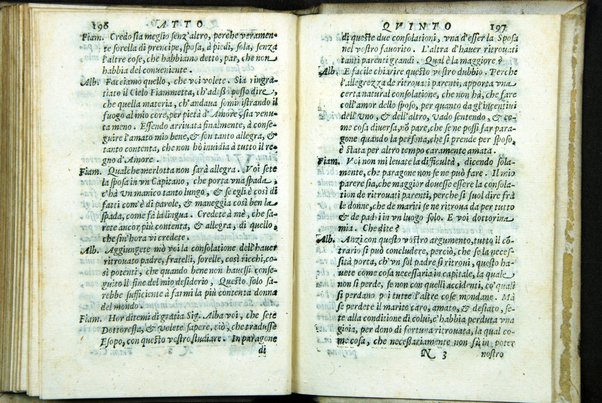 196 ATTO
Fiam. Credo sia meglio senz'altro, perche veramen-
te sorella di prencipe, sposa, à piedi, sola, senza
l'altre cose, che habbiamo detto, par, che non
habbia del conueniente.
Alb. Facciamo quello, che voi volete. Sia ringra-
tiato il Cielo Fiammetta, ch'adass'è posso dire,
che quella materia, ch'andana somistrando il
fuogo al mio core, per pietà d'Amore, s'è venu-
ta meno. Essendo arriuata finalmente, à conse-
guire l'amato mio bene, & son tanto allegra, &
tanto contenta, che non hò inuidia à tutto il re-
gno d'Amore.
Fiam. Qualche merlotta non sarà allegra. Voi sete
la sposa in vn Capitano, che porta vna spada,
c'hà vn manico tanto lungo, & se egli è così di
fatti com'è di parole, & maneggia così ben la
spada, come fà la lingua. Credete à mè, che sa-
rete ancor più contenta, & allegra, di quello,
che sin'hora vi credete.
Alb. Aggiungete mò voi la consolatione dell'hauer
ritrouato padre, fratelli, sorelle, così ricchi, co-
sì potenti, che quando bene non hauessi conse-
guito il fine mio desiderio, Questo solo sa-
rebbe sufficiente à farmi la più contenta donna
del mondo.
Fiam. Hor ditemi di gratia Sig. Alba voi, che sete
Dottoressa, & volete sapere, ciò, che tradusse
Esopo, con questo vostro studiare. In paragone
di
QVINTO 197
di queste due consolationi, vna d'esser la Sposa
nel vostro fauorito. L'altra d'hauer ritrouati
tanti parenti grandi. Qual è la maggiore?
Alb. E facile chiarire questo vostro dubbio. Perche
l'allegrezza de ritrouati parenti, apporta vna
certa natural consolatione, che non hà, che fare
coll'amor dello sposo, per quanto da gl'intentini
dell'Vno, & dell'altro, Vado sentendo, & co-
me cosa diuersa, nò pare, che se ne possi far para-
gone quando la persona, che si prende per sposo,
è stata per altro tempo caramente amata.
Fiam. Voi non mi leuate la difficultà, dicendo sola-
mente, che paragone non se ne può fare. Il mio
parere sia, che maggior douesse essere la consolation
de ritrouati parenti, perche si suol dire frà
le donne, che de mariti se ne ritroua da per tutto
& de padri in vn luogo solo. E voi dottorina
mia. Che dite?
Alb. Anzi con questo vostro argumento, tutto il cō-
trario si può concludere, perciò, che se la neces-
sità porta, ch'vn sol padre si ritroui, questo ha-
uete come cosa necessaria in capitale, la quale
non si perde, se non con quelli accidenti, co' quali
si perdano poi tutte l'altre cose mondane. Mà
se perdete il marito caro, amato, & destato, se-
te alla conditione di colui, c'habbia perduta vna
gioia, per dono di fortuna ritrouata, la qual co-
me cosa, che necessariamente non sij in poter
N 3 nostro